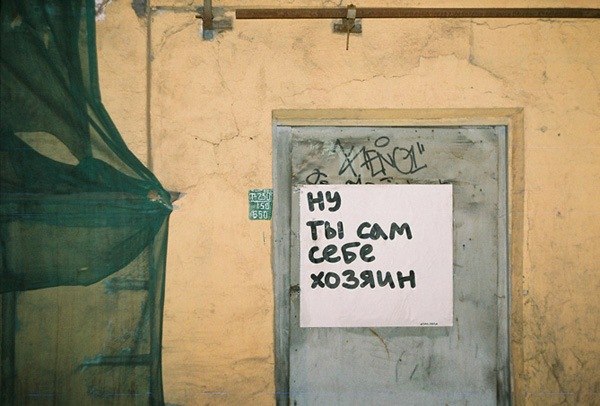 НУ
ТЫ САМ
СЕБЕ
ХОЗЯИН
150